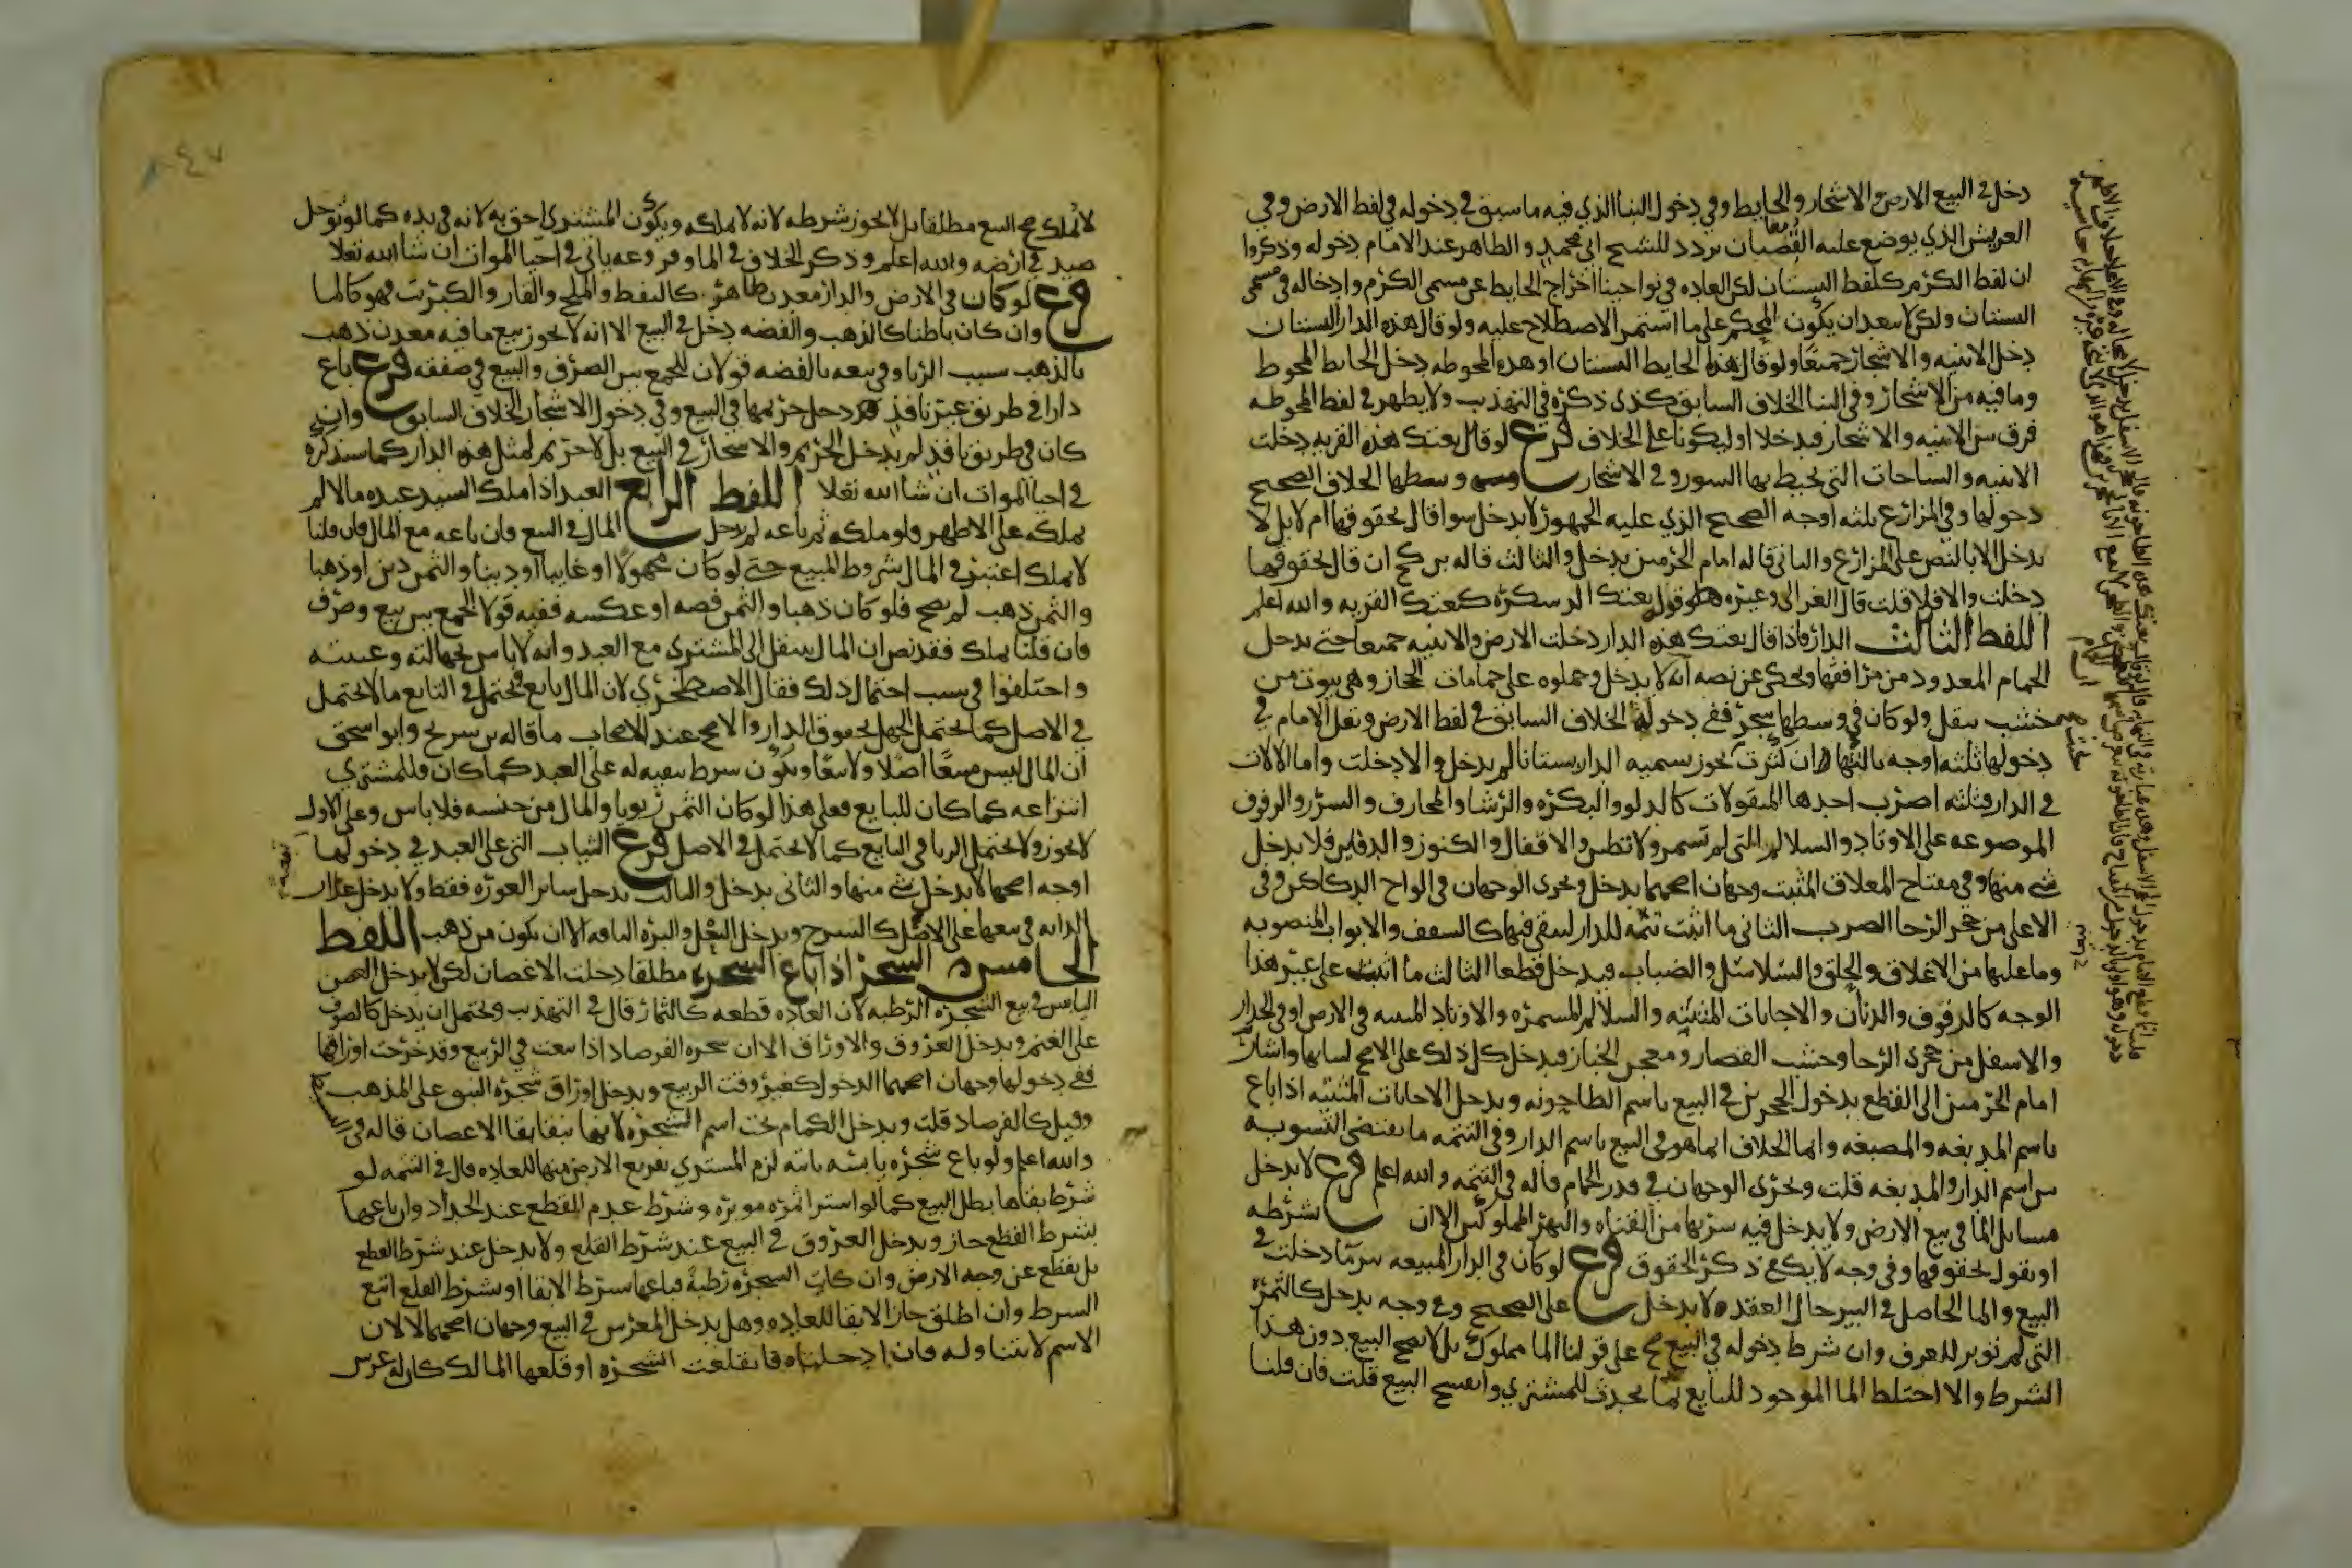 دخل في البيع الارض والاشجار والحايط وفي دخول البنا الذي فيه ما سبق في دخوله في لفظ الارض وفي
العريش الذي يوضع عليه القضبان تردد للشيخ ابي محمد والظاهر عند الامام دخوله وذكروا
ان لفظ الكرم كلفظ البستان لكن العاده في نواحينا اخراج الحايط عن مسمى الكرم وادخاله في مسمى
البستان ولكن لا يبعد ان يكون الحكم على ما استمر الاصطلاح عليه ولو قال هذه الدار البستان
دخل الابنيه والاشجار جميعا ولو قال هذا الحايط البستان او هذه المحوطه دخل الحايط المحوط
وما فيه من الاشجار وفي البنا الخلاف السابق كذى ذكره في التهذيب ولا يظهر في لفظ المحوطه
فرق بين الابنيه والاشجار فيدخلا او ليكونا على الخلاف فرع لو قال بعتك هذه القريه دخلت
الابنيه والساحات التي يحيط بها السور وفي الاشجار وسطها الخلاف الصحيح
دخولها وفي المزارع ثلثه اوجه الصحيح الذي عليه الجمهور لا يدخل سوا قال بحقوقها ام لا بل لا
يدخل الا بالنص على المزارع والثاني قاله امام الحرمين يدخل والثالث قاله بن كج ان قال بحقوقها
دخلت والا فلا قلت قال الغزالي وغيره وقوله بعتك الدسكره كبعتك القريه والله اعلم
اللفظ الثالث الدار فاذا قال بعتك هذه الدار دخلت الارض والابنيه جميعا حتى يدخل
الحمام المعدود من مرافقها وحكى عن نصه انه لا يدخل وحملوه على حمامات الحجاز وهي بيوت من
خشب ينقل ولو كان في وسطها شجر ففي دخوله الخلاف السابق في لفظ الارض ونقل الامام في
دخولها ثلثه اوجه ثالثها ان كثرت بحيث يجوز تسميه الدار بستانا لم يدخل والا دخلت واما الالات
في الدار فثلثه اضرب احدها المنقولات كالدلو والبكره والرشا والمجارف والسرر والرفوف
الموضوعه على الاوتاد والسلالم التي لم تسمر ولا تطين والاقفال والكنوز والدفاين فلا يدخل
شي منها وفي مفتاح المغلاق المثبت وجهان اصحهما يدخل ويجرى الوجهان في الواح الدكاكين وفي
الاعلى من حجر الرحا الضرب الثاني ما اثبت تتمه للدار ليبقى فيها كالسقف والابواب المنصوبه
وما عليها من الاغلاق والحلق والسلاسل والضباب فيدخل قطعا الثالث ما اثبت على غير هذا
الوجه كالرفوف والدنان والاجانات المثبته والسلالم المسمره والاوتاد المثبته في الارض او في الجدار
والاسفل من حجرى الرحا وخشب القصار ومعجن الخباز فيدخل كل ذلك على الاصح لثباتها واشار
امام الحرمين الى القطع بدخول الحجرين في البيع باسم الطاحونه ويدخل الاجانات المثبته اذا باع
باسم المدبغه والمصبغه وانما الخلاف انما هو في البيع باسم الدار وفي التتمه ما يقتضي التسويه
بين اسم الدار والمدبغه قلت ويجرى الوجهان في قدر الحمام قاله في التتمه والله اعلم فرع لا يدخل
مسايل الما في بيع الارض ولا يدخل فيه شربها من القناه والنهر المملوكين الا ان يشرطه
او يقول بحقوقها وفي وجه لا يكفي ذكر الحقوق فرع لو كان في الدار المبيعه بير ما دخلت في
البيع والما الحاصل في البير حال العقد لا يدخل على الصحيح وفي وجه يدخل كالثمره
التي لم تؤبر للعرف وان شرط دخوله في البيع صح على قولنا الما مملوك بل لا يصح البيع دون هذا
الشرط والا اختلط الما الموجود للبايع بما يحدث للمشتري وانفسخ البيع قلت فان قلنا
لا يملك صح البيع مطلقا بل لا يجوز شرطه لانه لا يملكه ويكون المشترى احق به لانه في يده كما لو توحل
صيد في ارضه والله اعلم وذكر الخلاف في الما وفروعه ياتي في احيا الموات ان شا الله تعالى
فرع لو كان في الارض والدار معدن ظاهر كالنفط والملح والقار والكبريت فهو كالما
وان كان باطنا كالذهب والفضه دخل في البيع الا انه لا يجوز بيع ما فيه معدن ذهب
بالذهب بسبب الربا وفي بيعه بالفضه قولان للجمع بين الصرف والبيع في صفقه فرع باع
دارا في طريق غير نافذ دخل حريمها في البيع وفي دخول الاشجار الخلاف السابق وان
كان في طريق نافذ لم يدخل الحريم والاشجار في البيع بل لا حريم لمثل هذه الدار كما سنذكره
في احيا الموات ان شا الله تعالى اللفظ الرابع العبد اذا ملك السيد عبده مالا لم
يملكه على الاظهر ولو ملكه ثم باعه لم يدخل المال في البيع وان باعه مع المال فان قلنا
لا يملك اعتبر في المال شروط المبيع حتى لو كان مجهولا او غايبا او دينا والثمن دين او ذهبا
والثمن ذهب لم يصح فلو كان ذهبا والثمن فضه او عكسه ففيه قولا الجمع بين بيع وصرف
فان قلنا يملك فقد نص ان المال ينتقل الى المشتري مع العبد وانه لا باس بجهالته وغيبته
واختلفوا في سبب احتمال ذلك فقال الاصطخري لان المال تابع ويحتمل في التابع ما لا يحتمل
في الاصل كما يحتمل الجهل بحقوق الدار والاصح عند الاصحاب ما قاله بن سريج وابو اسحق
ان المال ليس مبيعا اصلا ولا تبعا ويكون شرط تبقيه له على العبد كما كان فللمشتري
انتزاعه كما كان للبايع فعلى هذا لو كان الثمن ربويا والمال من جنسه فلا باس وعلى الاول
لا يجوز ولا يحتمل الربا في التابع كما لا يحتمل في الاصل فرع الثياب التي على العبد في دخولها
اوجه اصحها لا يدخل شي منها والثاني يدخل والثالث يدخل ساتر العوره فقط ولا يدخل عذار
الدابه في بيعها على الاصح كالسرج ويدخل النعل وبرة الناقه الا ان يكون من ذهب اللفظ
الخامس الشجر اذا باع الشجره مطلقا دخلت الاغصان لكن لا يدخل الغصن
اليابس في بيع الشجره الرطبه لان العاده قطعه كالثمار قال في التهذيب ويحتمل ان يدخل كالصوف
على الغنم ويدخل العروق والاوراق الا ان شجره الفرصاد اذا بيعت في الربيع وقد خرجت اوراقها
ففي دخولها وجهان اصحهما الدخول كغير وقت الربيع ويدخل اوراق شجره النبق على المذهب
وقيل كالفرصاد قلت ويدخل الكمام تحت اسم الشجره لانها تبقى ببقا الاغصان قاله في
والله اعلم ولو باع شجره يابسه ثابته لزم المشتري تفريغ الارض منها للعاده قال في التتمه لو
شرط بقاها بطل البيع كما لو اشترا ثمره مؤبره وشرط عدم القطع عند الجداد وان باعها
بشرط القطع جاز ويدخل العروق في البيع عند شرط القلع ولا يدخل عند شرط القطع
بل يقطع عن وجه الارض وان كانت الشجره رطبة فباعها بشرط الابقا او بشرط القلع اتبع
الشرط وان اطلق جاز الابقا للعاده وهل يدخل المغرس في البيع وجهان اصحهما لا لان
الاسم لا يتناوله فان ادخلناه فانقلعت الشجره او قلعها المالك كان له غرس